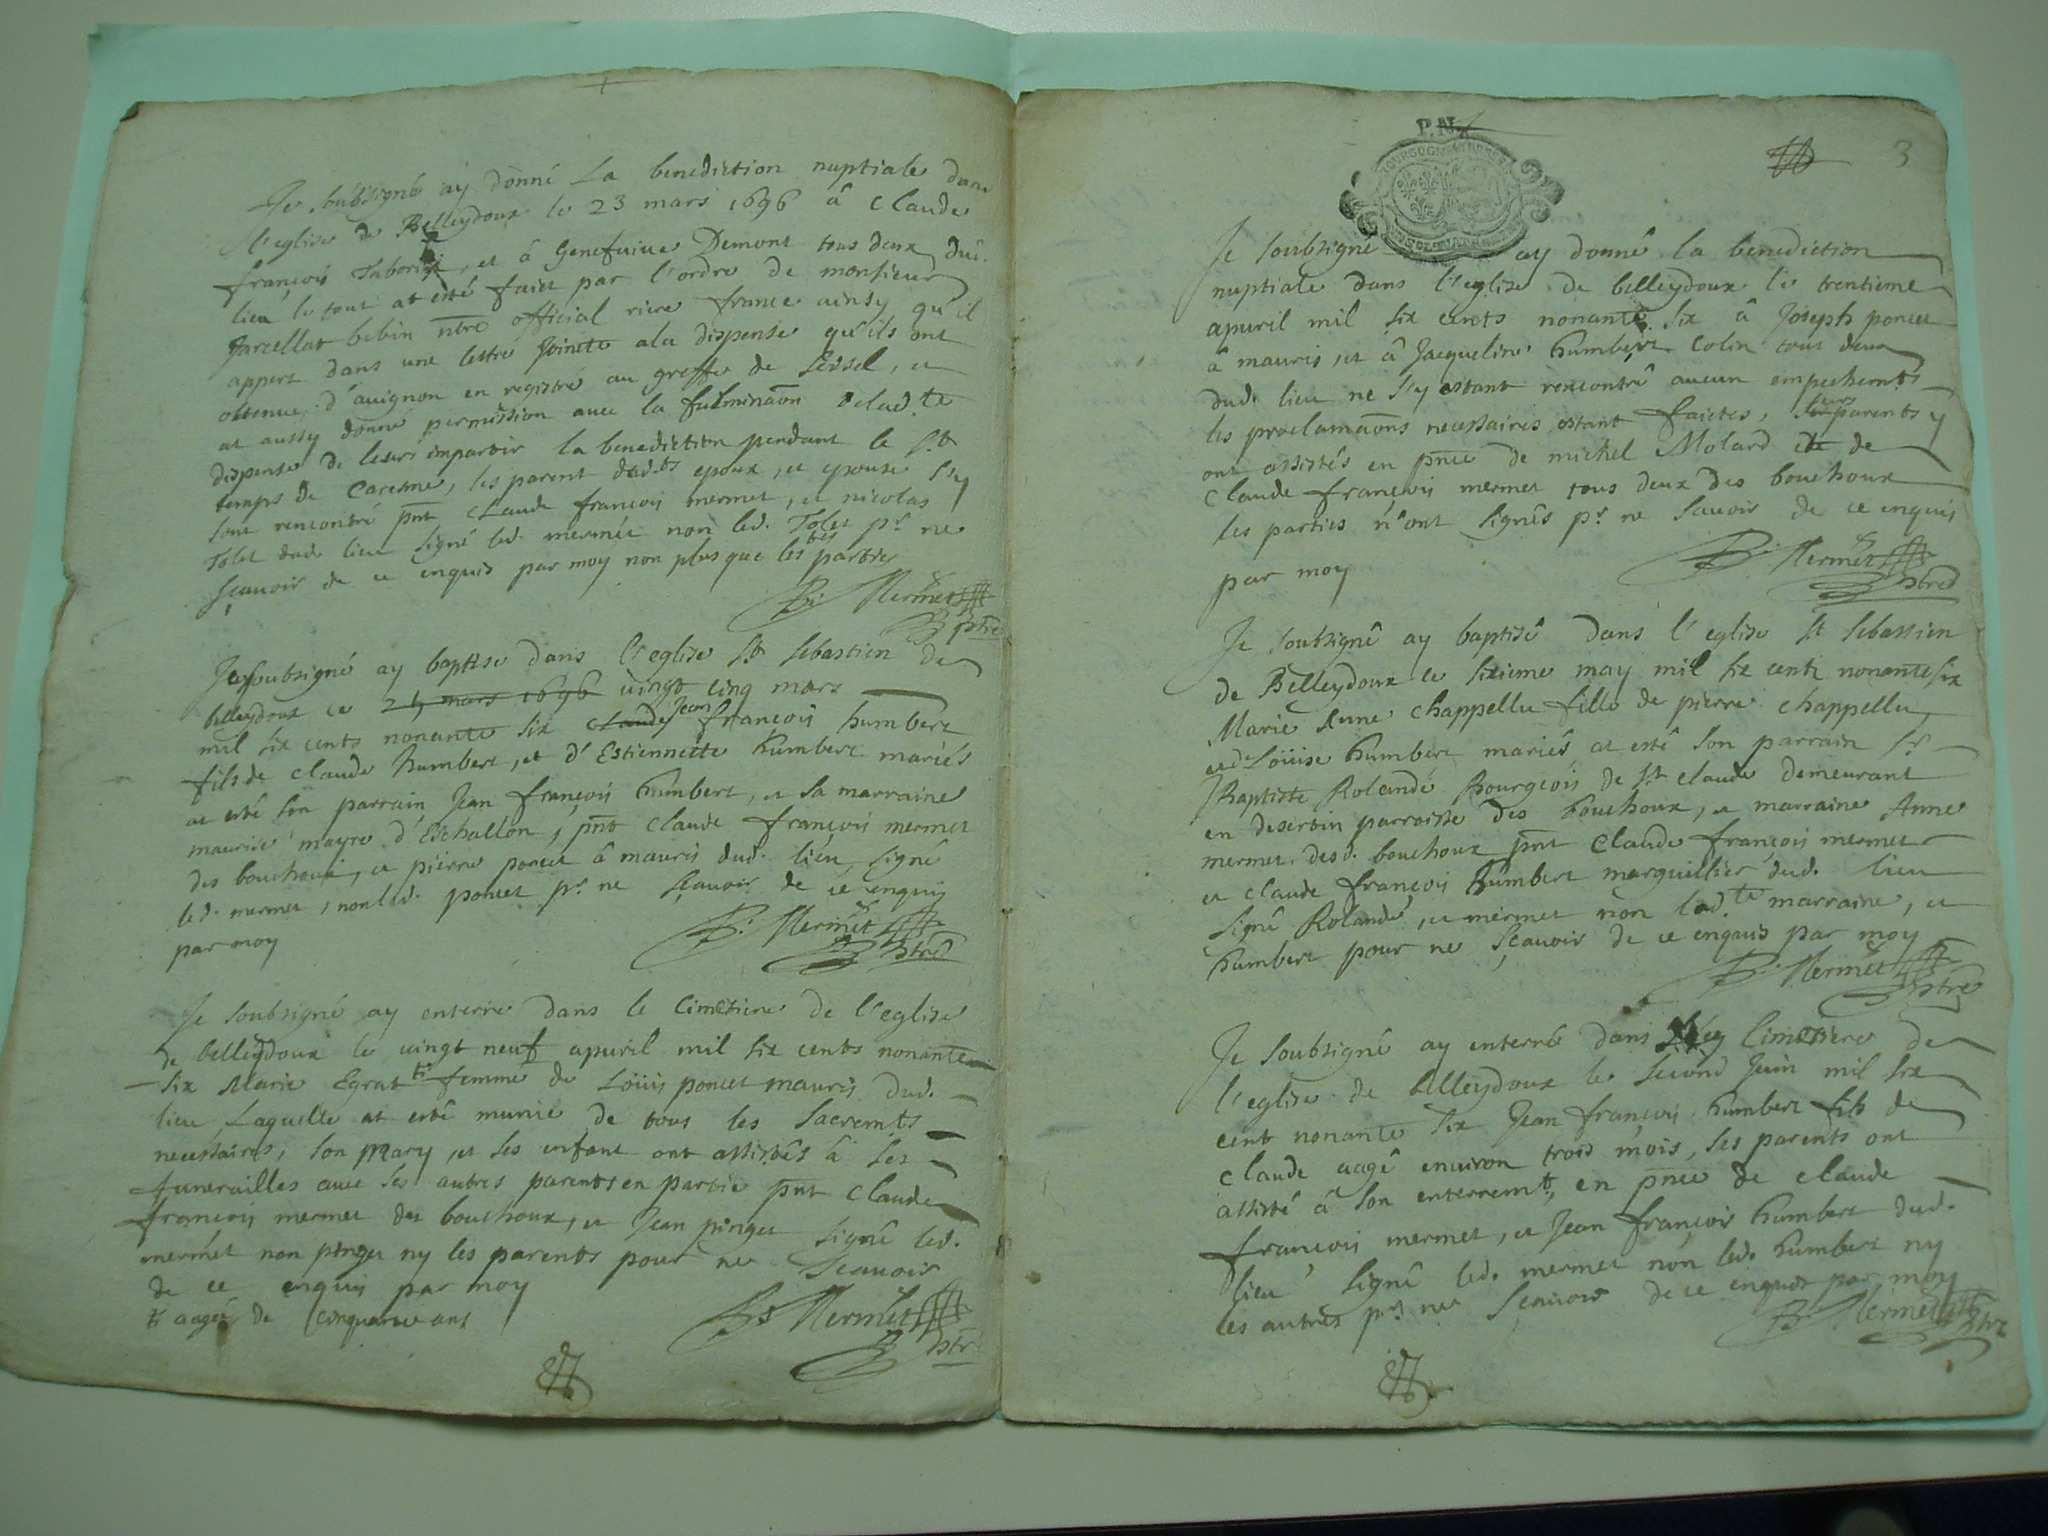 Je soubsigné ay donné La benediction nuptiale dans
l'eglise de Belleydoux le 23 mars 1696 â Claude
françois et â Genefuiue Demont tous deux dud.
lieu le tout at esté faict par l'ordre de monsieur
Jarcellat bebin nre official riere france ainsy qu'il
appert dans une lettre Jointe a la dispense qu'ils ont
obtenue d'auignon en registré au greffe de Seissel, et
at aussy donné permission auec la fulminaon de lad.te
dispense de leurs impartir la benediction pendant le st
temps de Caresme, les parent desd.ts epoux, et epouse s'y
sont rencontré pnt Claude françois mermet, et nicolas
Tolet dud. lieu signé led. mermet non led. Tolet pr. ne
sçauoir de ce enquis par moy non plus que lesd.tes parties
Mermet
ptre
Je soubsigné ay baptise dans l'eglise st sebastien de
belleydoux ce 25 mars 1696 uingt cinq mars
mil six cents nonante six claude Jean françois humbert
fils de claude humbert, et d'Estiennette humbert mariés
at esté son parrain Jean françois humbert, et sa marraine
maurise mayre d'Eschallon, pnt claude françois mermet
des bouchoux, et pierre poncet â mauris dud. lieu, signé
led. mermet, non led. poncet pr. ne sçauoir de ce enquis
par moy
Mermet
ptre
Je soubsigné ay enterré dans le Cimetiere de l'eglise
de belleydoux le uingt neuf apuril mil six cents nonante
six Marie Egrat femme de Loüis poncet mauris dud.
lieu Laquelle at esté munie de tous les sacremts
necessaires, son mary, et ses enfant ont assistés â ses
funerailles auec ses autres parents en partie pnt Claude
françois mermet des bouchoux, et Jean pinget signé led.
mermet non pinget ny les parents pour ne sçauoir
de ce enquis par moy
aagée de cinquante ans
Mermet
ptre
P.N.
3
Je soubsigné ay donné la benediction
nuptiale dans l'eglise de belleydoux le trentieme
apuril mil six cents nonante six â Joseph poncet
â mauris, et â Jacqueline humbert Colin tout deux
dud. lieu ne s'y estant rencontré aucun empechemts
les proclamaons necessaires estant faictes, leurs parents y
ont assistés en pnce de michel Molard et de
Claude françois mermet tous deux des bouchoux
les parties n'ont signés pr. ne sauoir de ce enquis
par moy
Mermet
ptre
Je soubsigné ay baptisé dans l'eglise st sebastien
de Belleydoux ce sixieme may mil six cents nonante six
Marie Anne Chappellu fille de pierre chappellu
et de Loüise humbert mariés at esté son parrain sr.
Baptiste Rolandé Bourgeois de st claude demeurant
en desertin parroisse des bouchoux, et marraine Anne
mermet desd. bouchoux pnt Claude françois mermet
et claude françois humbert marguillier dud. lieu
signé Rolandé, et mermet non lad.te marraine, et
humbert pour ne sçauoir de ce enquis par moy
Mermet
ptre
Je soubsigné ay enterré dans le Cimetiere de
l'eglise de belleydoux le second Juin mil six
cent nonante six Jean françois humbert fils de
Claude aagé enuiron trois mois, ses parents ont
assisté â son enterremt, en pnce de claude
françois mermet, et Jean françois humbert dud.
lieu signé led. mermet non led. humbert ny
les autres pr. ne sçauoir de ce enquis par moy
Mermet
ptre